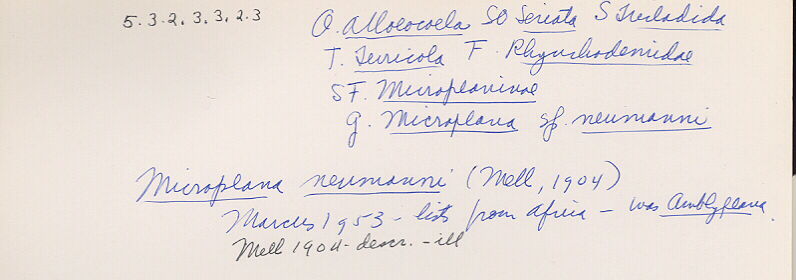 5.3.2.3.3.2.3
O. Alloeocoela SO Seriata S Tricladida
T. Terricola F. Rhynchodemidae
SF. Microplaninae
g. Microplana sp. neumanni
Microplana neumanni (Mell, 1904)
Marcus 1953 - lists from Africa - was Amblyplana.
Mell 1904 - descr. - ill